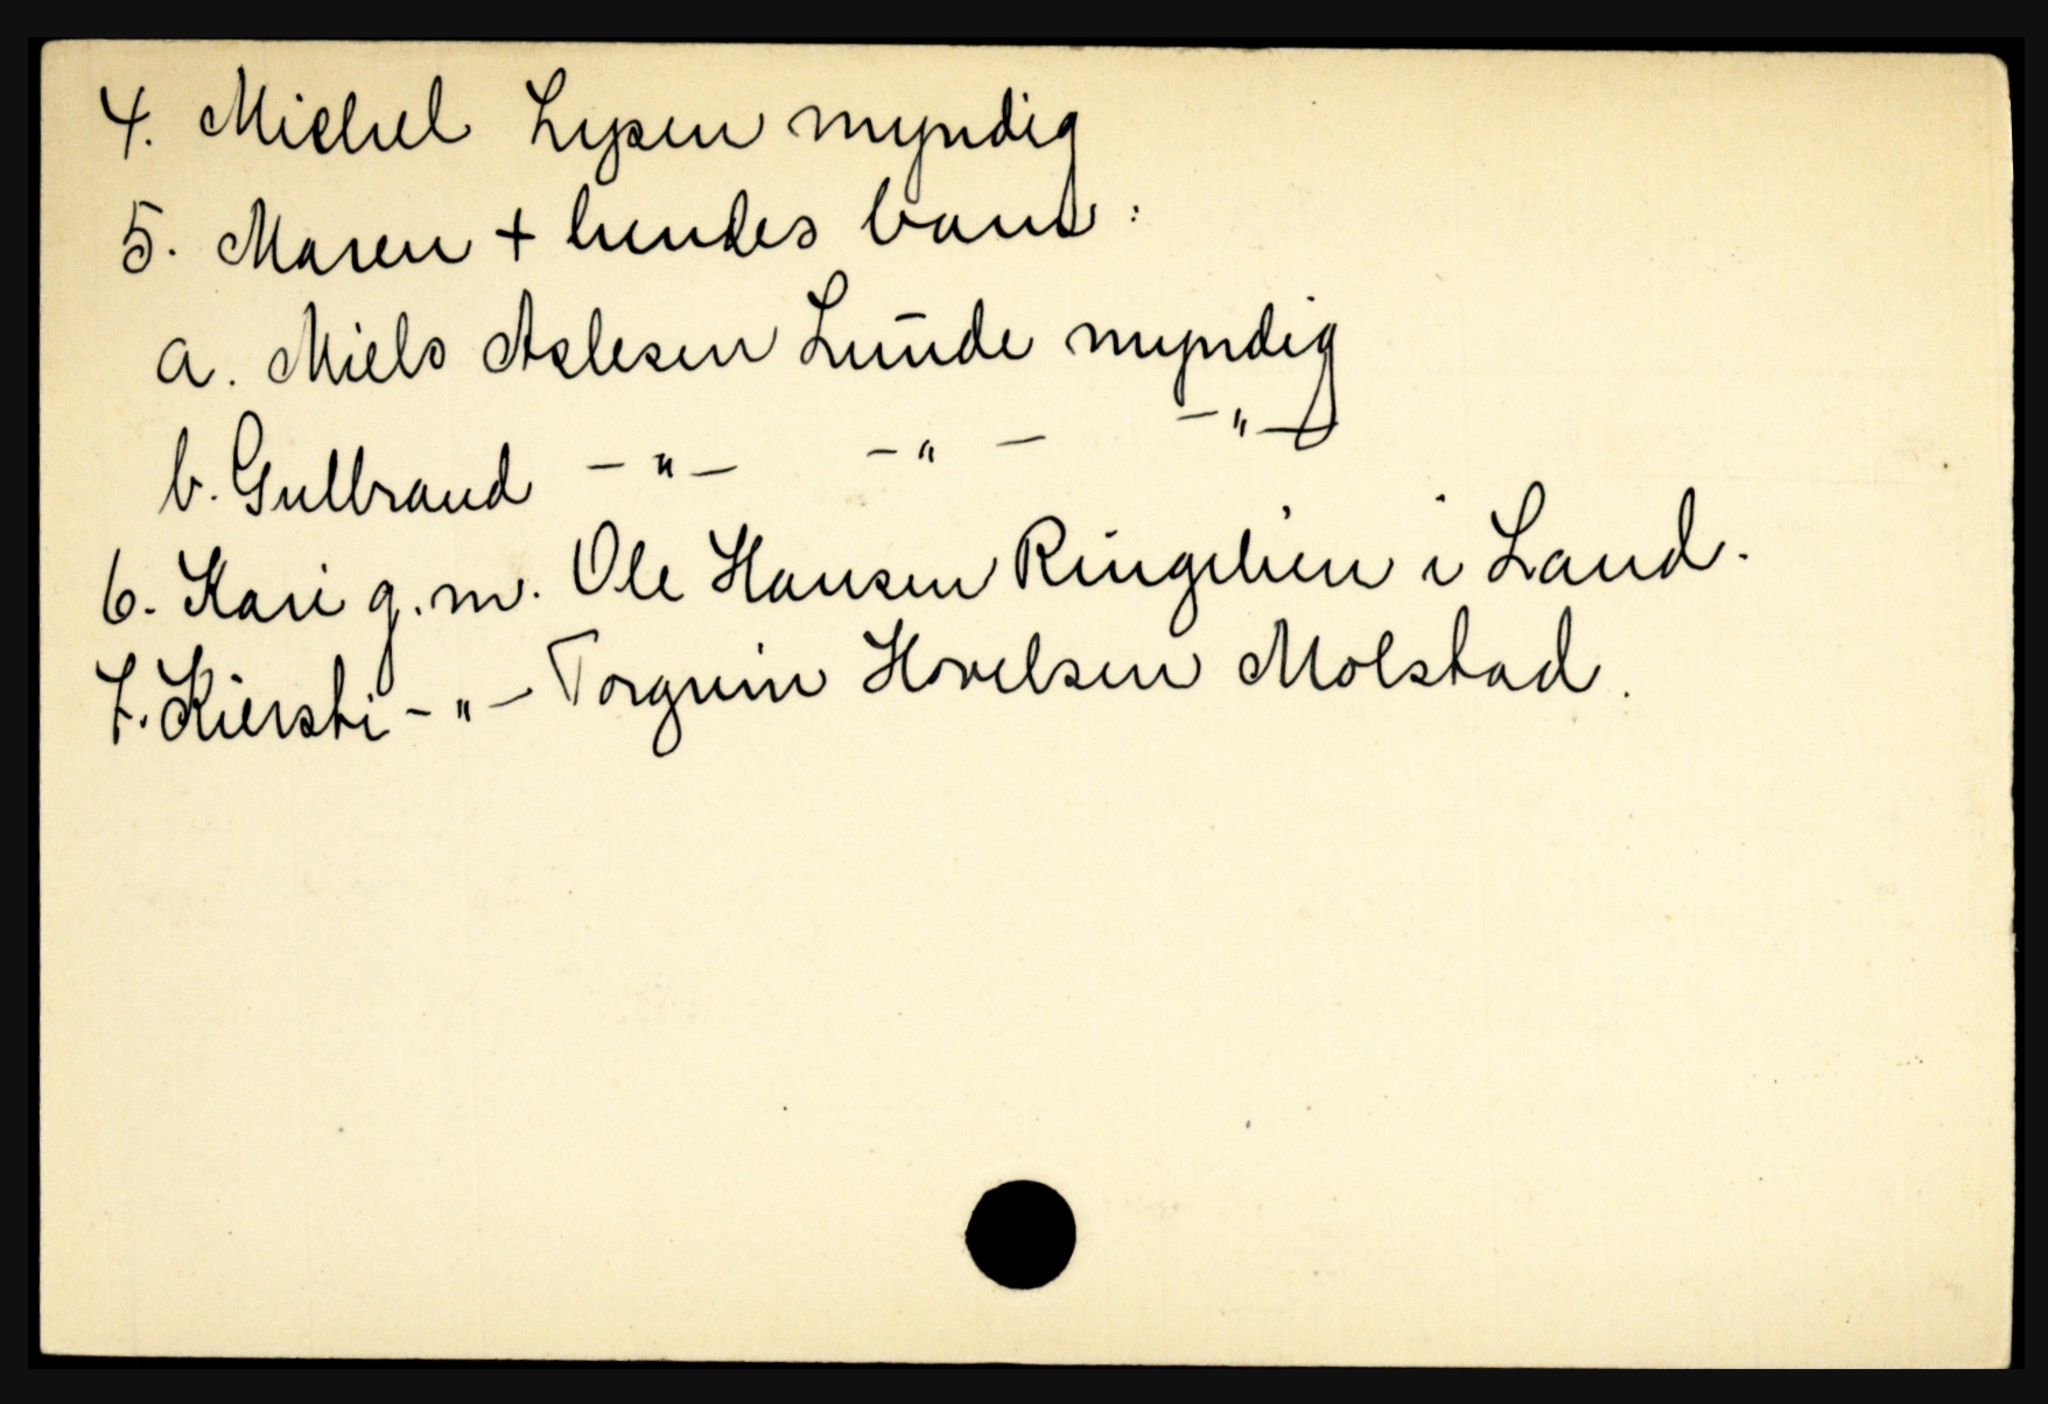 4. Michel Lysen myndig
5. Maren + hendes barn:
a. Niels Aslesen Lunde myndig
b. Gulbrand -"- -"- -"-
6. Kari g.m. Ole Hansen Ringelien i Land.
7. Kiersti -"- Torgrim Hovelsen Molstad.